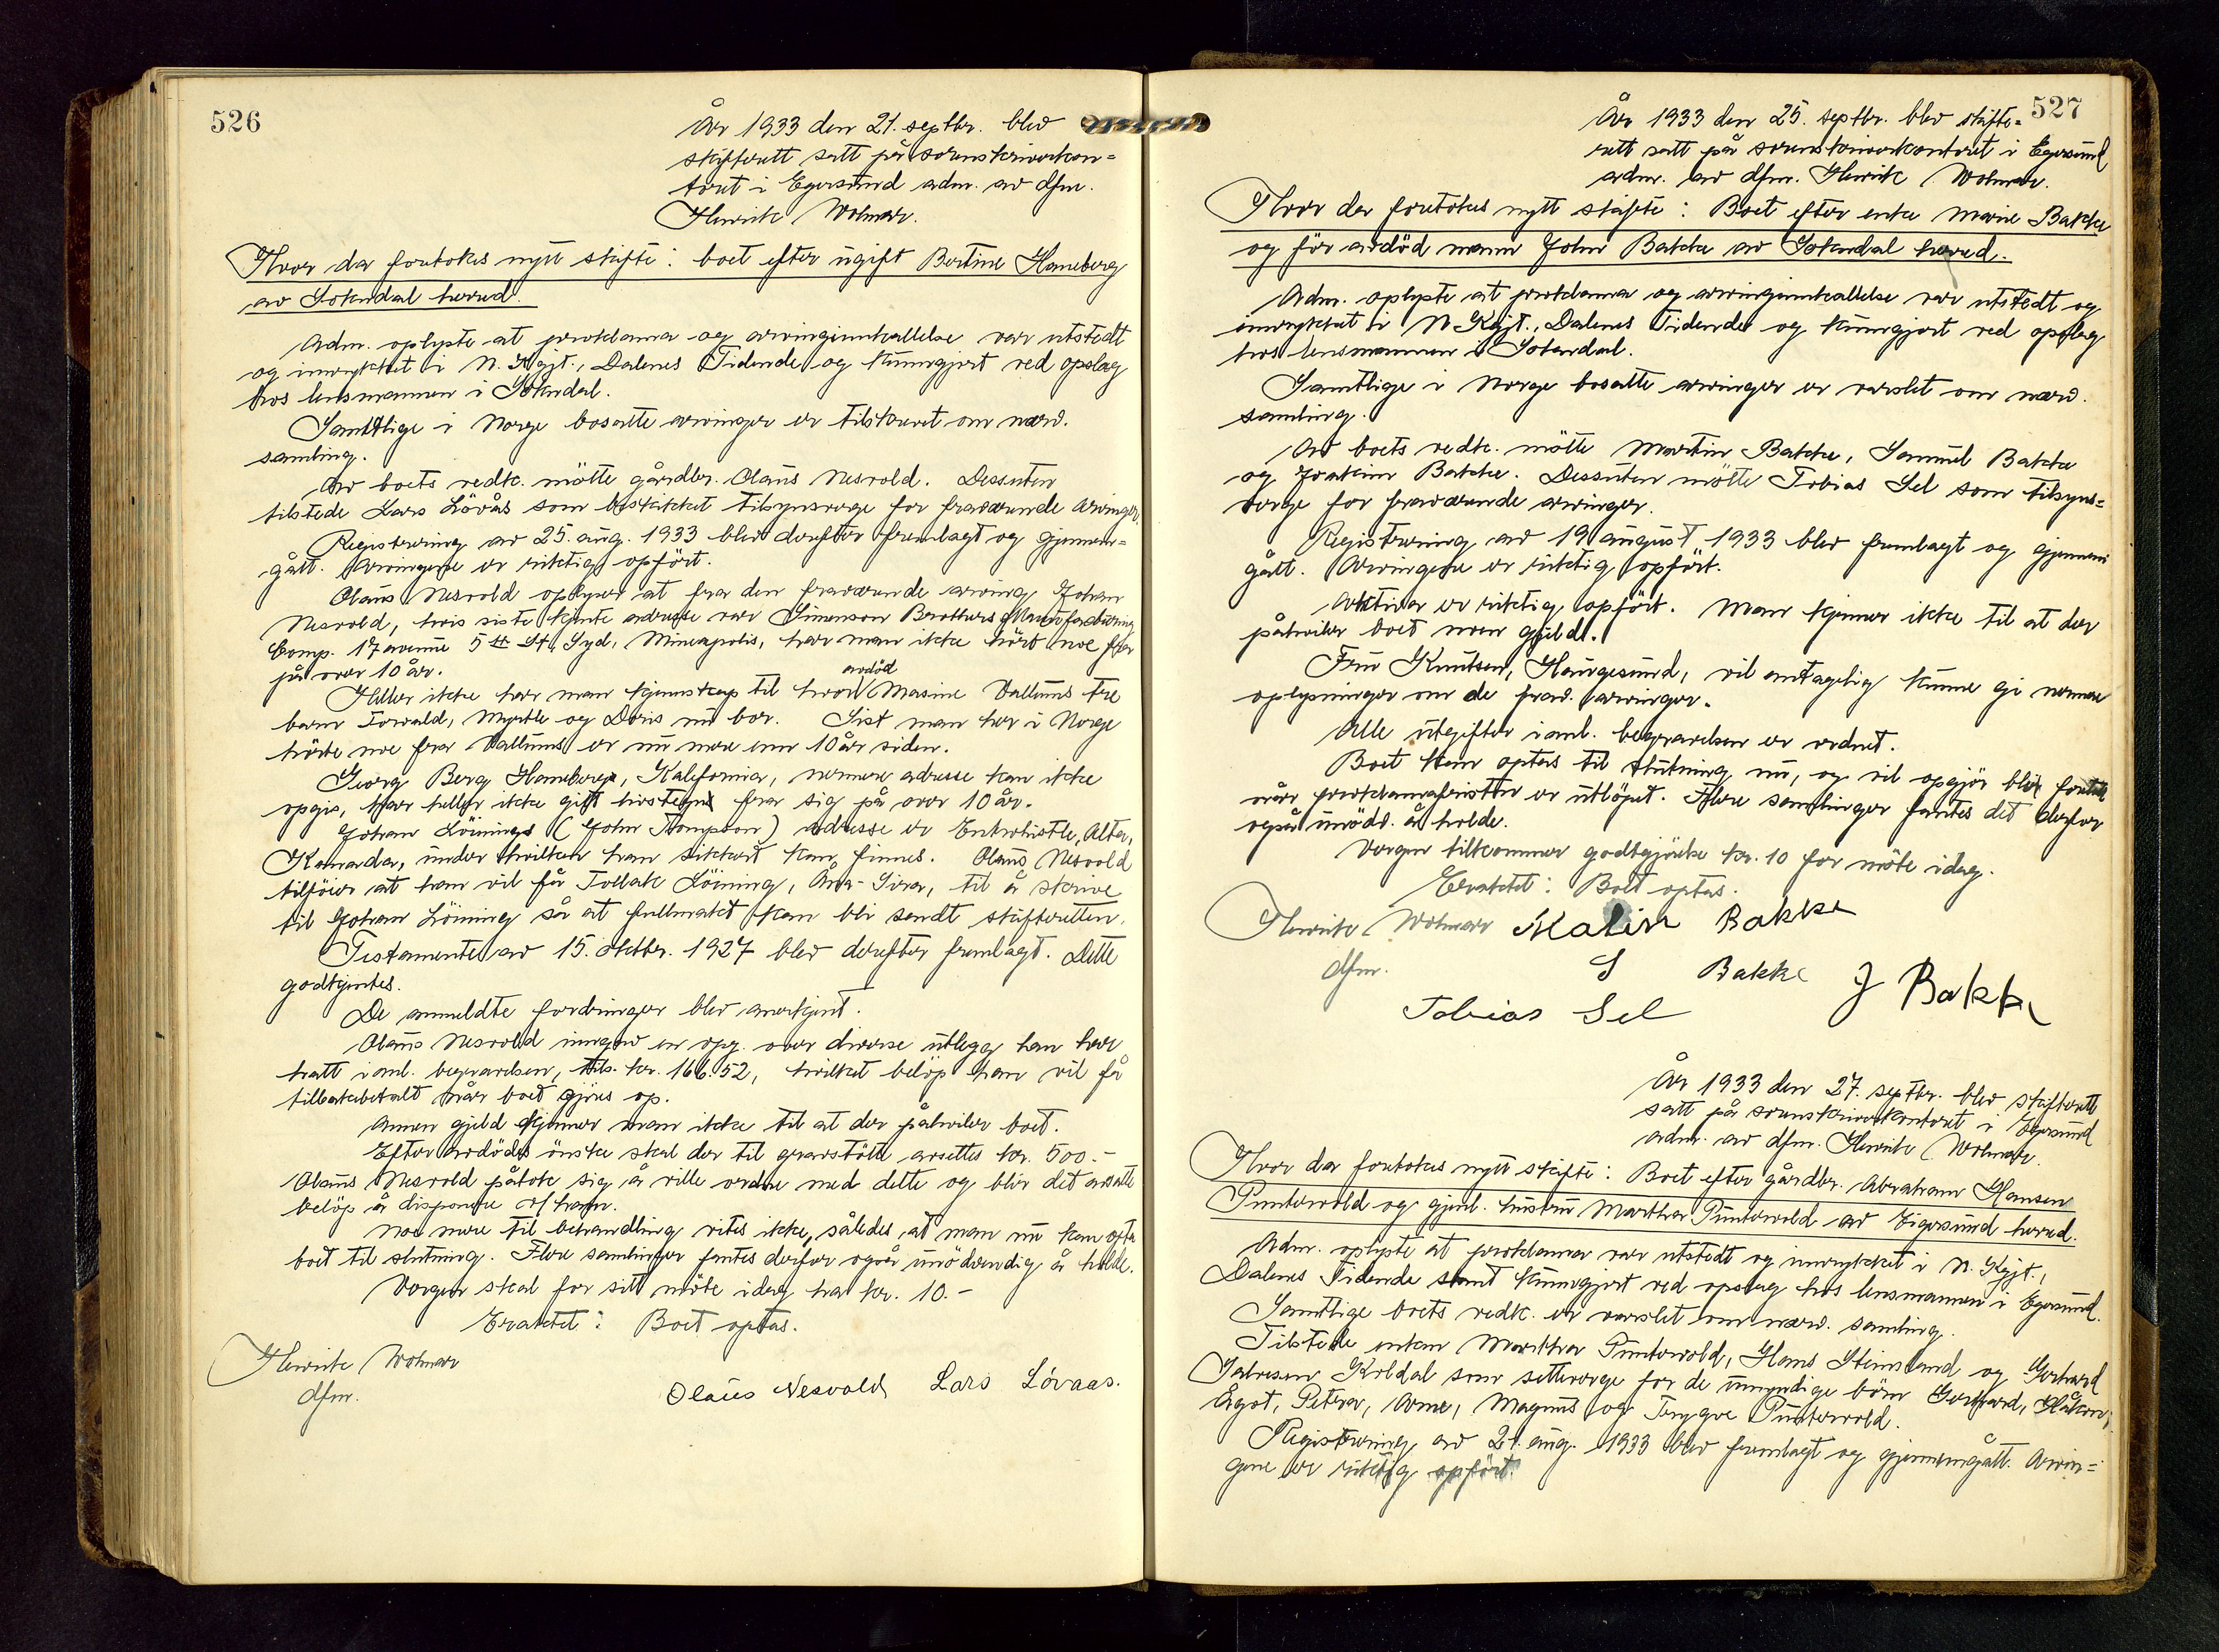 526
År 1933 den 21. septbr. blev
skifterett satt på sorenskriverkon=
toret i Egersund adm. av dfm.
Henrik Wolmar.
Hvor da foretokes nytt skifte: boet efter ugift Bertine Haneberg
av Sokndal herred.
Adm. oplyste at proklama og arvinginnkallelse var utstedt
og innrykket i N. Kgjt., Dalenes Tidende og kunngjort ved opslag
hos lensmannen i Sokndal.
Samtlige i Norge bosatte arvinger er tilskrevet om nærv.
samling.
Av boets vedk. møtte gårdbr. Olaus Nesvold. Dessuten
tilstede Lars Lövås som beskikket tilsynsverge for fraværende arvinger.
Registrering av 25. aug. 1933 blev derefter fremlagt og gjennem=
gått. Arvingene er riktig opfört.
Olaus Nesvold oplyser at fra den fraværende arving Johan
Nesvold, hvis siste kjente adresse var Simonson Brothers Manufacturing
Comp. 17 avenue 5 th St, Syd, Mineapolis, har man ikke hört noe fra
på over 10 år.
Heller ikke har man kjennskap til hvor avdöd Masine Vallums tre
barn Torvald, Myrtle og Doris nu bor. Sist man her i Norge
hörte noe fra Vallums er nu mere enn 10 år siden.
Georg Berg Haneberg, Kalifornia, nermere adresse kan ikke
opgis, har heller ikke gitt livstegn fra sig på over 10 år.
Johan Löinings (John Thompson) adresse er Entwhistle, Alta,
Kanada, under hvilken han sikkert kan finnes. Olaus Nesvold
tilföier at han vil få Tollak Löining, Åna-Sira, til å skrive
til Johan Löining så at fullmakt kan bli sendt skifteretten.
Testamente av 15. oktbr. 1927 blev derefter fremlagt. Dette
godkjentes.
De anmeldte fordringer blev anerkjent.
Olaus Nesvold inngav en opg. over diverse utlegg han har
hatt i anl. begravelsen, tils. kr. 166.52, hvilket belöp han vil få
tilbakebetalt når boet gjöres op.
Annen gjeld kjenner man ikke til at der påhviler boet.
Efter avdödes önske skal der til gravstötte avsettes kr. 500.-
Olaus Nesvold påtok sig å ville ordne med dette og blir det avsatte
belöp å disponere av ham.
Noe mere til behandling vites ikke, således at man nu kan opta
boet til slutning. Flere samlinger fantes derfor også unödvendig å holde.
Vergen skal for sitt möte idag ha kr. 10.-
Eraktet: Boet optas.
Henrik Wolmar
dfm.
Olaus Nesvold Lars Lövaas.
527
År 1933 den 25. septbr. blev skifte=
rett satt på sorenskriverkontoret i Egersund
adm. av dfm. Henrik Wolmar.
Hvor da foretokes nytt skifte: Boet efter enke Marie Bakke
og för avdöd mann John Bakke av Sokndal herred.
Adm. oplyste at proklama og arvinginnkallelse var utstedt og
innrykket i N. Kgjt., Dalenes Tidende og kunngjort ved opslag
hos lensmannen i Sokndal.
Samtlige i Norge bosatte arvinger er varslet om nærv.
samling.
Av boets vedk. mötte Martin Bakke, Samuel Bakke
og Joakim Bakke. Dessuten mötte Tobias Sel som tilsyns=
verge for fraværende arvinger.
Registrering av 19 august 1933 blev fremlagt og gjennem
gått. Arvingene er riktig opfört.
Aktiva er riktig opfört. Man kjenner ikke til at der
påhviler boet noen gjeld.
Fru Knutsen, Haugesund, vil antagelig kunne gi nermere
oplysninger om de frav. arvinger.
Alle utgifter i anl. begravelsen er ordnet.
Boet kan optas til slutning nu, og vil opgjör bli foretatt
når proklamafristen er utlöpet. Flere samlinger fantes det derfor
også unödv. å holde.
Vergen tilkommer godtgjörelse kr. 10 for möte idag.
Eraktet: Boet optas.
Henrik Wolmar Matin Bakke
dfm. S Bakke J Bakke
Tobias Sel
År 1933 den 27. septbr. blev skifterett
satt på sorenskriverkontoret i Egersund
adm. av dfm. Henrik Wolmar.
Hvor da foretokes nytt skifte: Boet efter gårdbr. Abraham Hansen
Puntervold og gjenl. hustru Martha Puntervold av Eigersund herred.
Adm. oplyste at proklama var utstedt og innrykket i N. Kgjt.,
Dalenes Tidende samt kunngjort ved opslag hos lensmannen i Egersund.
Samtlige boets vedk. er varslet om nærv. samling.
Tilstede enken Martha Puntervold, Hans Steinsland og Gerhard
Salvesen Koldal som setteverge for de umyndige barn Gerhard, Håkon,
Ågot, Petra, Arne, Magnus og Trygve Puntervold.
Registrering av 21. aug. 1933 blev fremlagt og gjennemgått. Arvin=
gene er riktig opfört.